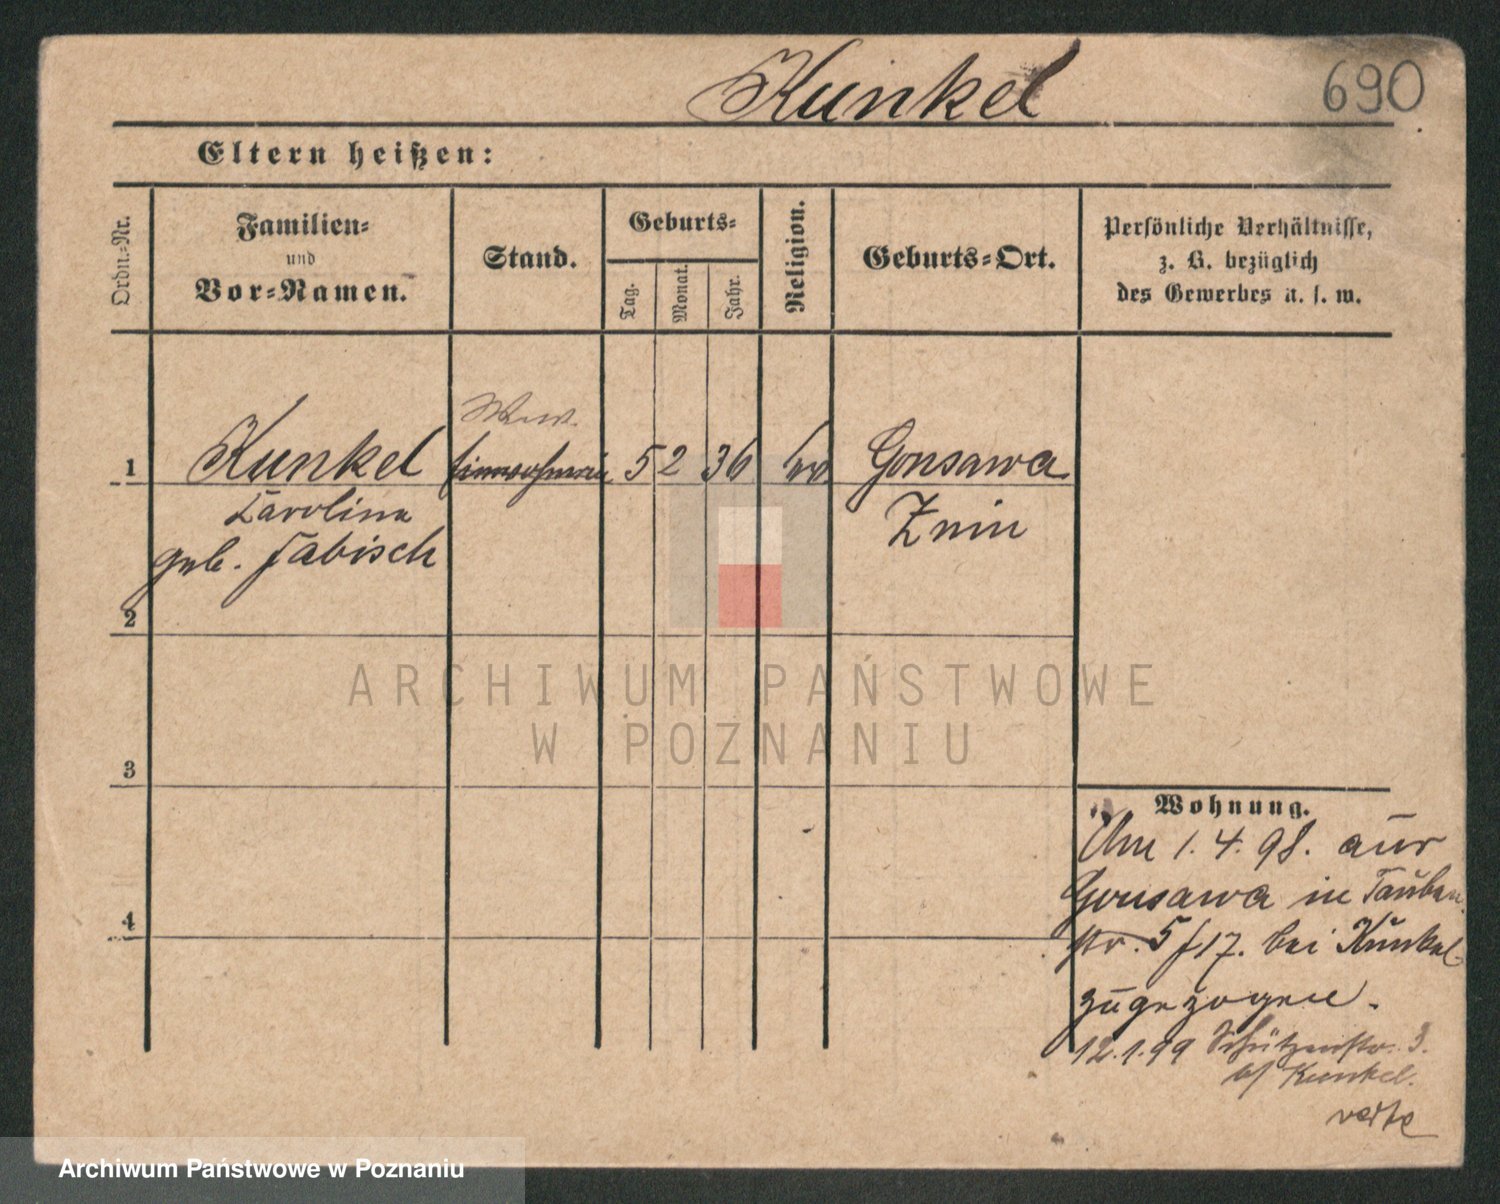 Kunkel
690
Eltern heißen:
Ordn.-Nr.
Familien-
und
Vor-Namen.
Stand.
Geburts-
Tag.
Monat.
Jahr.
Religion.
Geburts-Ort.
Persönliche Verhältnisse,
z. B. bezüglich
des Gewerbes u. s. w.
Wwe.
1 Kunkel 5 2 36 ev Gonsawa
Carolina Znin
geb. Jabisch
2
3
4
Wohnung.
Am 1. 4. 98. aus
Gonsawa in Tauben
str. 5/17. bei Kunkel
zugezogen.
12.1.99 Schützenstr. 3.
b/ Kunkel.
verte
ARCHIWUM PAŃSTWOWE
W POZNANIU
Archiwum Państwowe w Poznaniu